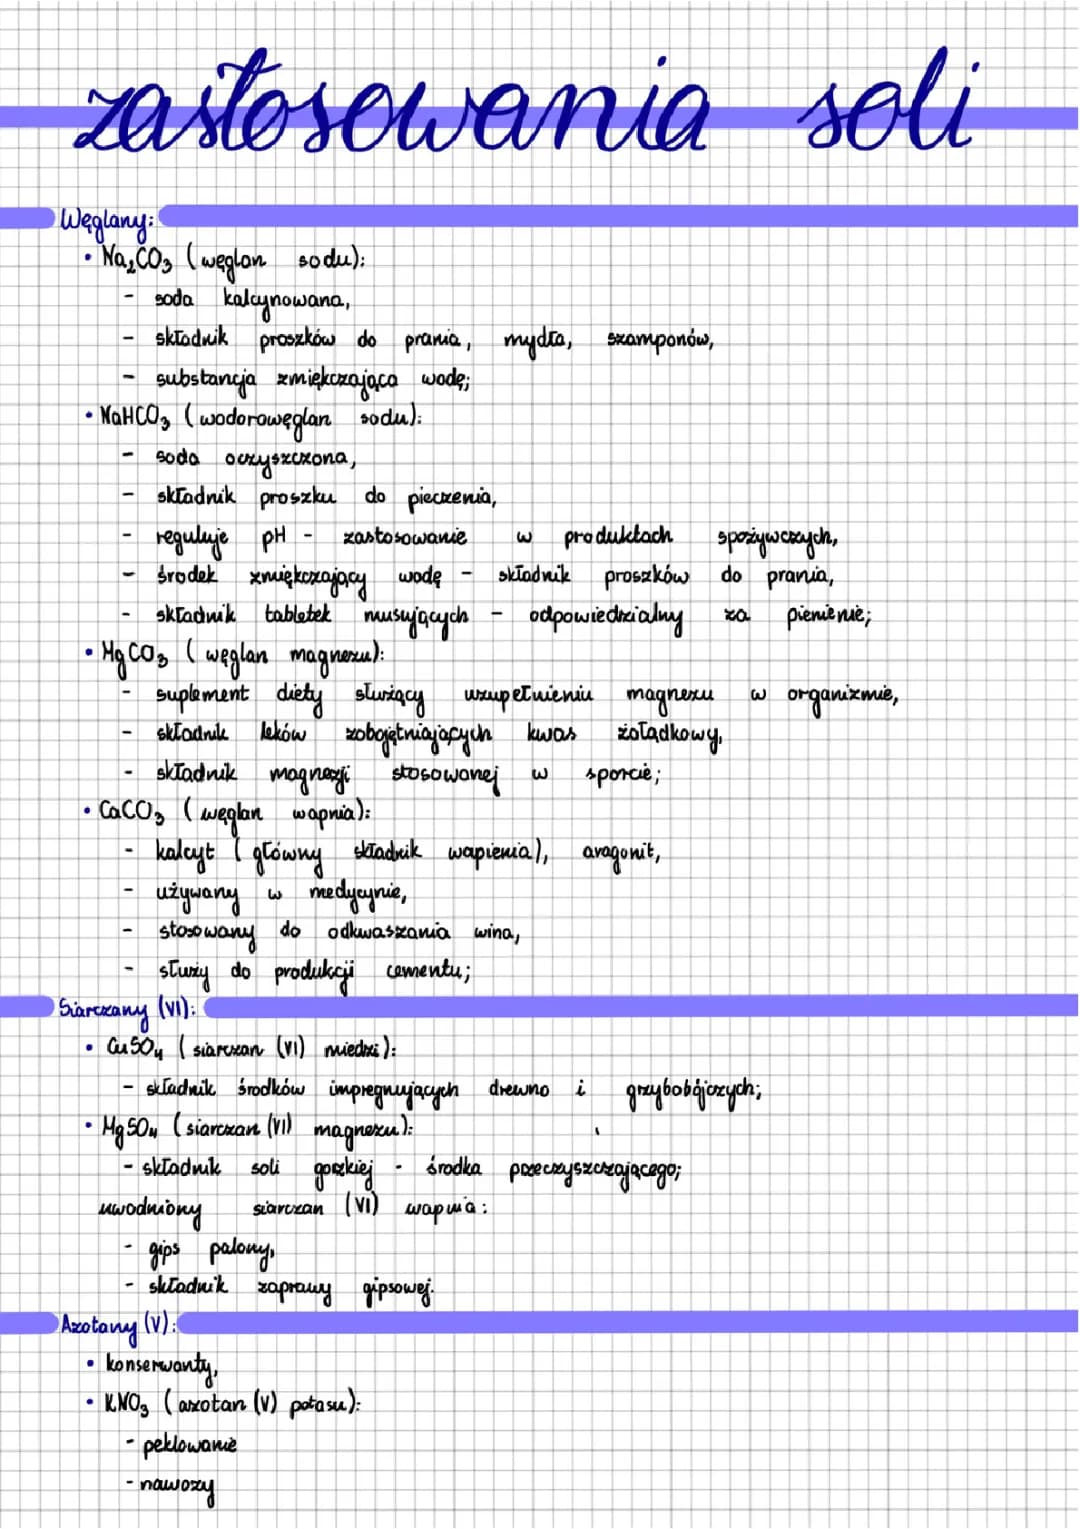 zastosowania soli
Węglany:
• Na₂CO₃ (węglan sodu):
- soda kalcynowana,
- składnik proszków do prania, mydła, szamponów,
- substancja zmiękczająca wodę;
• NaHCO₃ (wodorowęglan sodu):
- soda oczyszczona,
- składnik proszku do pieczenia,
- reguluje pH - zastosowanie w produktach spożywczych,
- środek zmiękczający wodę - składnik proszków do prania,
- składnik tabletek musujących - odpowiedzialny za pienienie;
• MgCO₃ (węglan magnezu):
- suplement diety służący uzupełnieniu magnezu w organizmie,
- składnik leków zobojętniających kwas żołądkowy,
- składnik magnezji stosowanej w sporcie;
• CaCO₃ (węglan wapnia):
- kalcyt (główny składnik wapienia), aragonit,
- używany w medycynie,
- stosowany do odkwaszania wina,
- służy do produkcji cementu;
Siarczany (VI):
• CuSO₄ (siarczan (VI) miedzi):
- składnik środków impregnujących drewno i grzybobójczych;
• MgSO₄ (siarczan (VI) magnezu):
- składnik soli gorzkiej - środka przeczyszczającego;
uwodniony siarczan (VI) wapnia:
- gips palony,
- składnik zaprawy gipsowej.
Azotany (V):
• konserwanty,
• KNO₃ (azotan (V) potasu):
- peklowanie
- nawozy